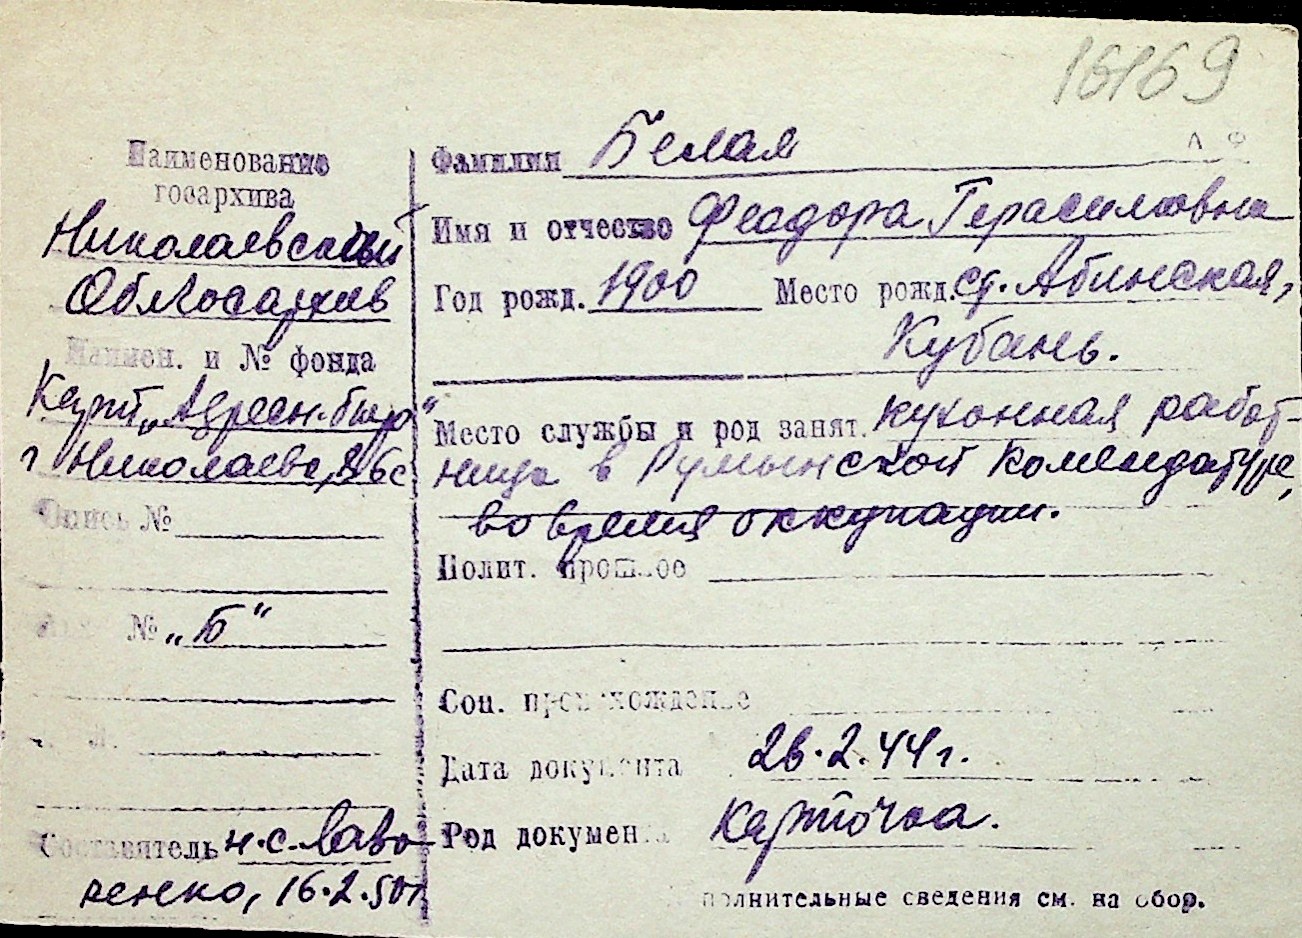 16169
Наименование
госархива
Николаевский
Облгосархив
Наимен. и № фонда
Карт. „Адресн. бюро“
г Николаева,
Опись №
№ „Б“
Л.
Составитель н.с. Лавო
ренко, 16.2.50г
Фамилия Белая
А Ф
Имя и отчество Феодора Герасимовна
Год рожд. 1900 Место рожд. ст. Абинская,
Кубань.
Место службы и род занят. кухонная работ-
ница в Румынской комендатуре,
во время оккупации.
Полит. прошлое
Соц. происхождение
Дата документа 26.2.44г.
Род документа карточка.
Дополнительные сведения см. на обор.